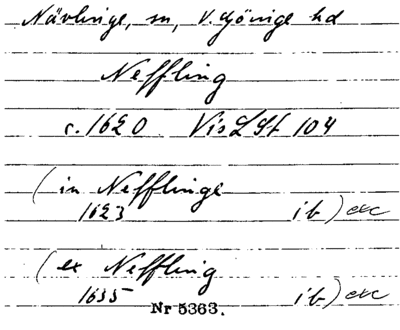 Nävlinge, sn, V. Göinge hd
Neffling
c. 1620 Vis L St 104
(in Nefflinge
1623 ib) exc
(ex Neffling
1635 ib) exc
Nr 5363.